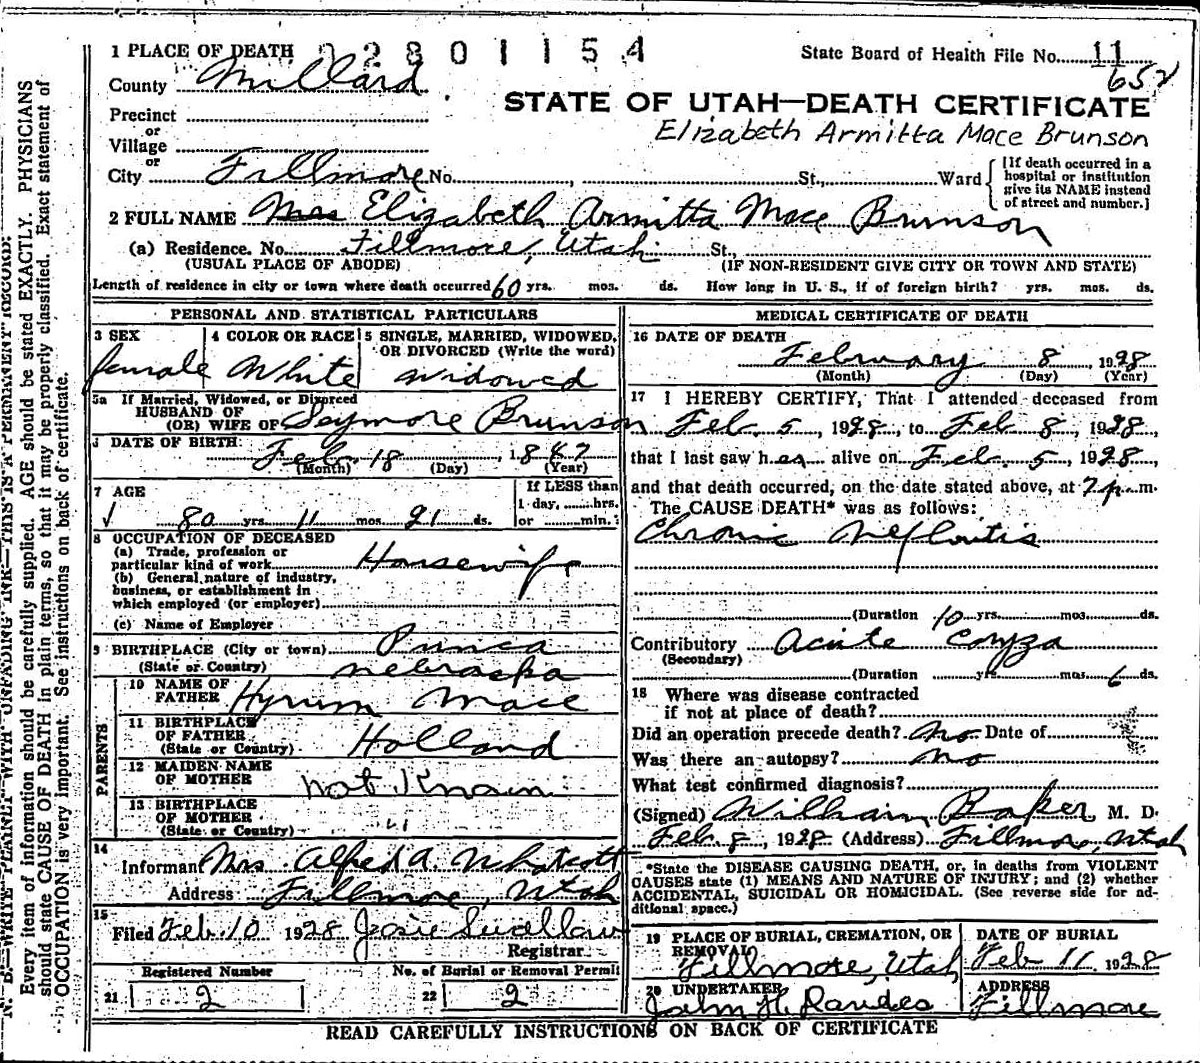 1 PLACE OF DEATH 2 2 8 0 1 1 5 4
State Board of Health File No. 11
652
County Millard
STATE OF UTAH—DEATH CERTIFICATE
Elizabeth Armitta Mace Brunson
Precinct
or
Village
or
City Fillmore No. , St., Ward
[If death occurred in a hospital or institution give its NAME instead of street and number.]
2 FULL NAME Mrs Elizabeth Armitta Mace Brunson
(a) Residence. No. Fillmore, Utah St.,
(USUAL PLACE OF ABODE) (IF NON-RESIDENT GIVE CITY OR TOWN AND STATE)
Length of residence in city or town where death occurred 60 yrs. mos. ds. How long in U. S., if of foreign birth? yrs. mos. ds.
PERSONAL AND STATISTICAL PARTICULARS
3 SEX
female
4 COLOR OR RACE
White
5 SINGLE, MARRIED, WIDOWED,
OR DIVORCED (Write the word)
widowed
5a If Married, Widowed, or Divorced
HUSBAND OF
(OR) WIFE OF Seymore Brunson
6 DATE OF BIRTH:
Feb. 18, 1847
(Month) (Day) (Year)
7 AGE
80 yrs. 11 mos. 21 ds.
If LESS than
1 day, hrs.
or min.
8 OCCUPATION OF DECEASED
(a) Trade, profession or
particular kind of work Housewife
(b) General nature of industry,
business, or establishment in
which employed (or employer)
(c) Name of Employer
9 BIRTHPLACE (City or town) Punca
(State or Country) Nebraska
PARENTS
10 NAME OF
FATHER Hyrum Mace
11 BIRTHPLACE
OF FATHER
(State or Country) Holland
12 MAIDEN NAME
OF MOTHER not Known
13 BIRTHPLACE
OF MOTHER
(State or Country) "
14
Informant Mrs. Alfred A. Whatcott
Address Fillmore, Utah
15
Filed Feb. 10 1928 Josie Swallow
Registrar
Registered Number
21 2
No. of Burial or Removal Permit
22 2
MEDICAL CERTIFICATE OF DEATH
16 DATE OF DEATH
February 8, 1928
(Month) (Day) (Year)
17 I HEREBY CERTIFY, That I attended deceased from
Feb. 5, 1928, to Feb 8, 1928,
that I last saw her alive on Feb. 5, 1928
and that death occurred, on the date stated above, at 7 p. m.
The CAUSE DEATH* was as follows:
Chronic Nefloutis
(Duration 10 yrs. mos. ds.
Contributory Acute Coryza
(Secondary)
(Duration yrs. mos. 6 ds.
18 Where was disease contracted
if not at place of death?
Did an operation precede death? no Date of
Was there an autopsy? no
What test confirmed diagnosis?
(Signed) William Baker, M. D.
Feb. 8, 1928 (Address) Fillmore, Utah
*State the DISEASE CAUSING DEATH, or, in deaths from VIOLENT
CAUSES state (1) MEANS AND NATURE OF INJURY; and (2) whether
ACCIDENTAL, SUICIDAL OR HOMICIDAL. (See reverse side for ad-
ditional space.)
19 PLACE OF BURIAL, CREMATION, OR
REMOVAL
Fillmore, Utah
DATE OF BURIAL
Feb 11 1928
20 UNDERTAKER
John H.
ADDRESS
Fillmore
READ CAREFULLY INSTRUCTIONS ON BACK OF CERTIFICATE
N. B.—WRITE PLAINLY WITH UNFADING INK—THIS IS A PERMANENT RECORD.
Every item of Information should be carefully supplied. AGE should be stated EXACTLY. PHYSICIANS
should state CAUSE OF DEATH in plain terms, so that it may be properly classified. Exact statement of
OCCUPATION is very important. See instructions on back of certificate.